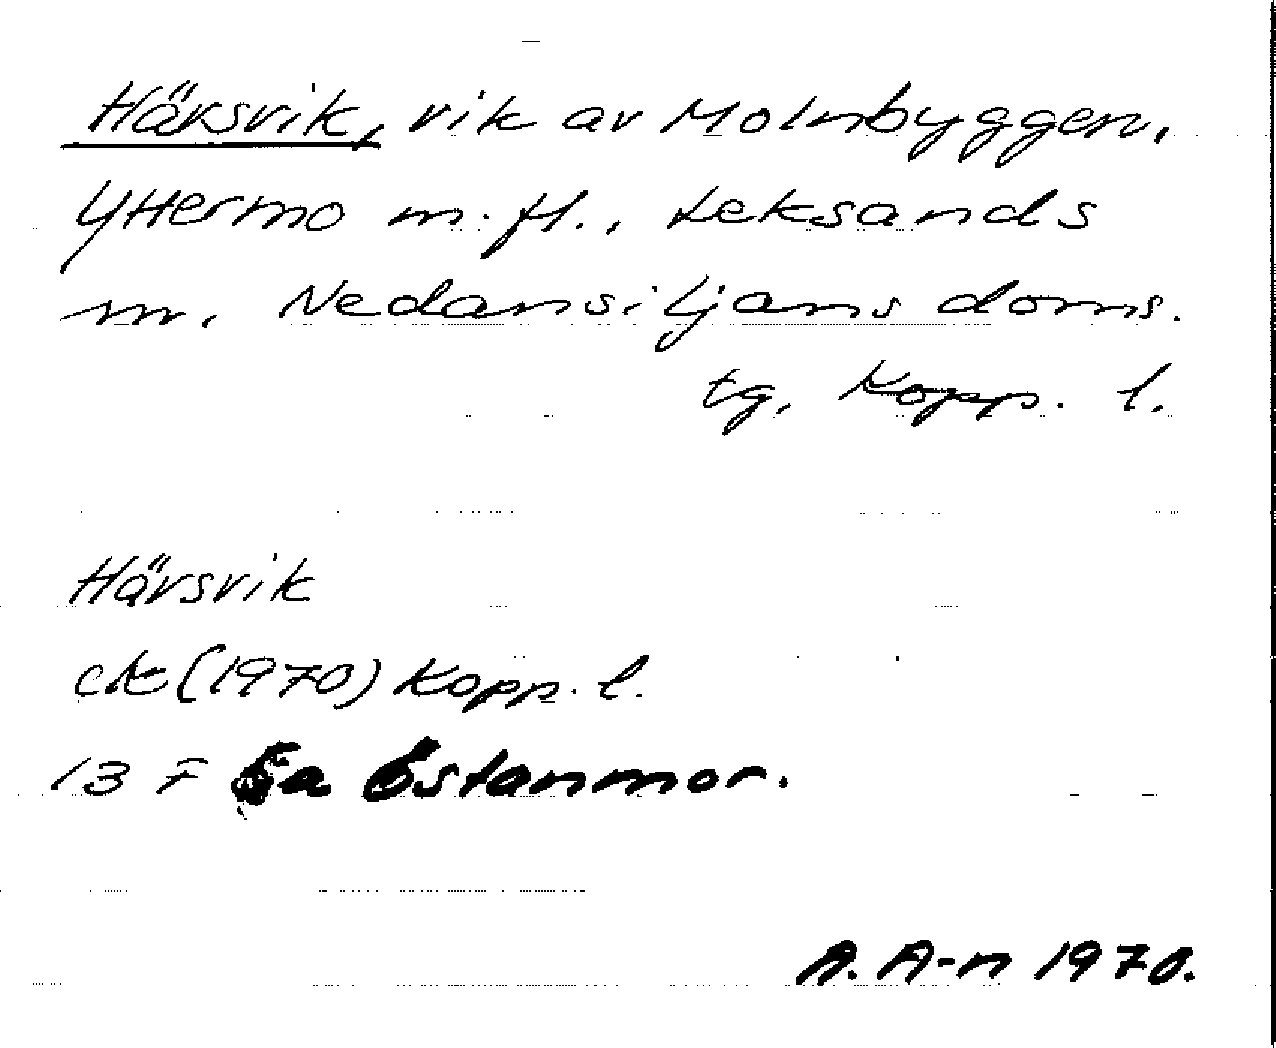 Härsvik, vik av Molnbyggen,
Yttermo m. fl., Leksands
sn. Nedansiljans doms.
tg, Kopp. l.
Härsvik
ek (1970) Kopp. l.
13 F Östanmor.
A. A-n 1970.